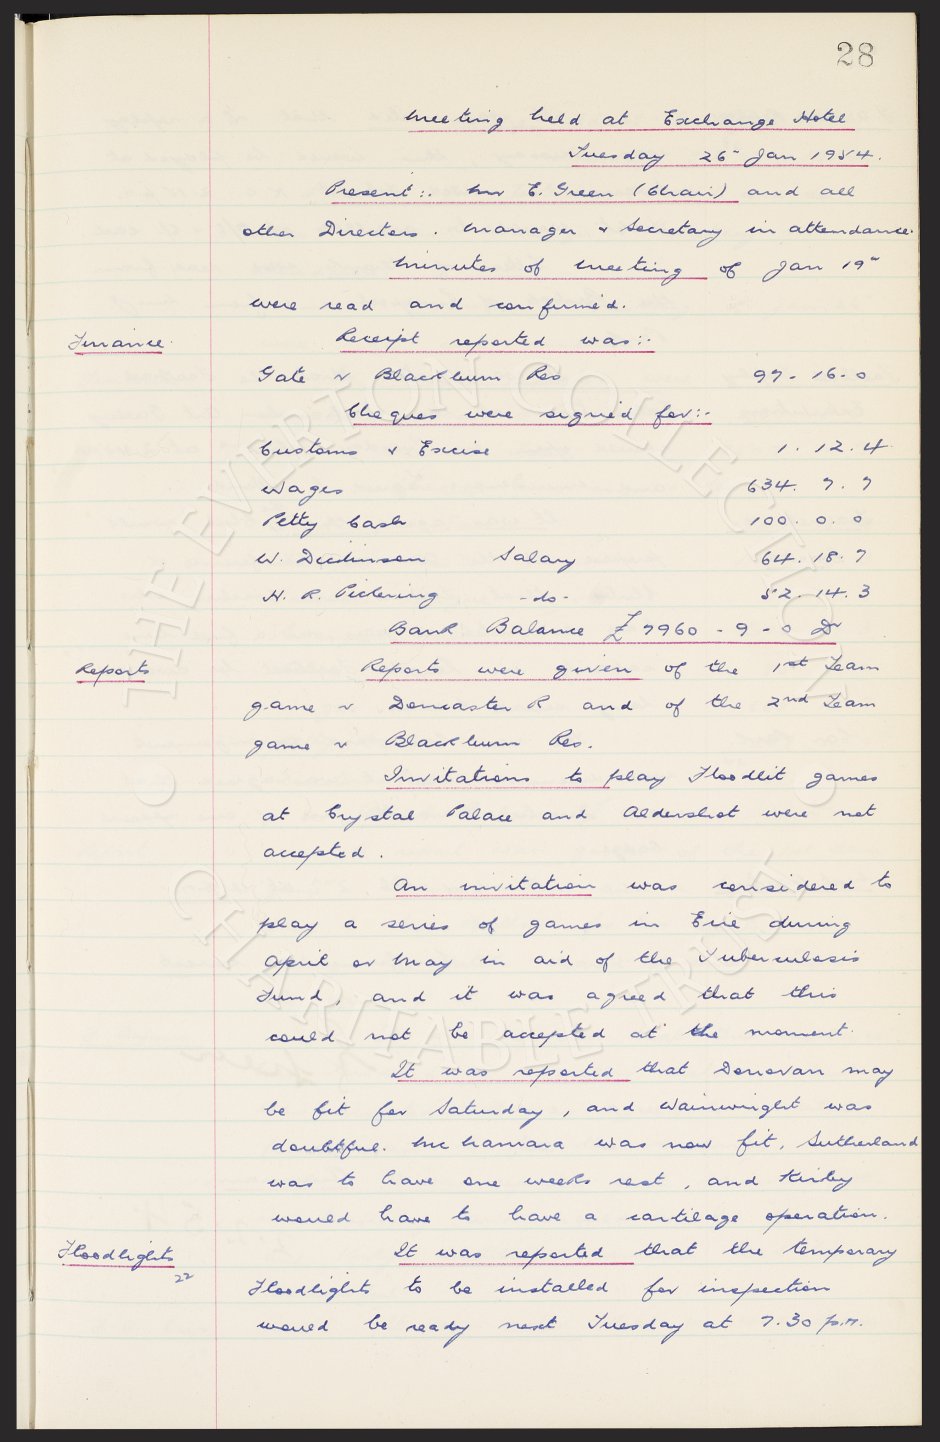 28
Meeting held at Exchange Hotel
Tuesday 26" Jan 1954.
Present:. Mr E. Green (Chair) and all
other Directors. Manager & Secretary in attendance.
Minutes of meeting of Jan 19"
were read and confirmed.
Finance.
Receipt reported was:-
Gate v Blackburn Res 97-16-0
Cheques were signed for:-
Customs & Excise 1.12.4
Wages 634.7.7
Petty Cash 100.0.0
W. Dickinson Salary 64.18.7
H. R. Pickering -do- 52.14.3
Bank Balance £7960-9-0 Dr
Reports
Reports were given of the 1st Team
game v Doncaster R and of the 2nd Team
game v Blackburn Res.
Invitations to play Floodlit games
at Crystal Palace and Aldershot were not
accepted.
An invitation was considered to
play a series of games in Eire during
April or May in aid of the Tuberculosis
Fund, and it was agreed that this
could not be accepted at the moment.
It was reported that Donovan may
be fit for Saturday, and Wainwright was
doubtful. McNamara was now fit, Sutherland
was to have one weeks rest, and Kirby
would have to have a cartilage operation.
Floodlights
22
It was reported that the temporary
Floodlights to be installed for inspection
would be ready next Tuesday at 7.30 p.m.
THE EVERTON COLLECTION
CHARITABLE TRUST